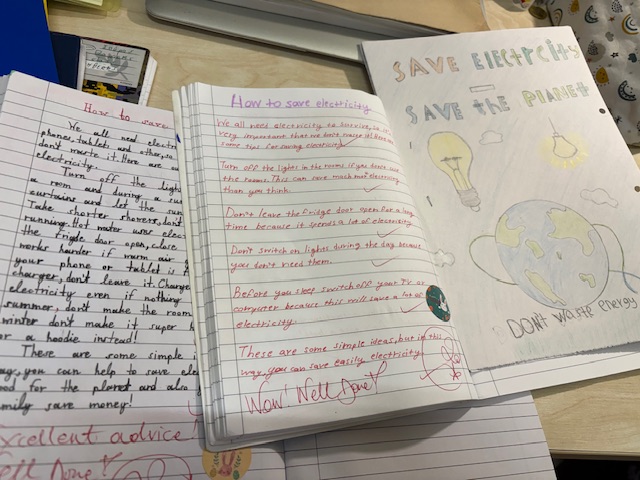 How to save
We all need elect
phones, tablets and other, so
don't waste it. Here are
electricity.
Turn off the lig
a room and during a su
curtains and let the sun
Take shorter showers, don't
running. Hot water uses elec
the fridge door open, close
works harder if warm air g
your phone or tablet is f
charger, don't leave it. Charge
electricity even if nothing
summer, don't make the room
winter don't make it super h
or a hoodie instead!
These are some simple i
ay, you can help to save ele
ood for the planet and also
mily save money!
xcellent advice!
ell Done!
How to save electricity
We all need electricity to survive, so it
very important that we don't waste it! Here are
some tips for saving electricity.
Turn off the lights in the rooms if you don't use
the rooms. This can save much more electricity
than you think.
Don't leave the fridge door open for a long
time because it spends a lot of electricity.
Don't switch on lights during the day because
you don't need them.
Before you sleep switch off your TV or
computer because this will save a lot of
electricity.
These are some simple ideas, but in this
way, you can save easily electricity.
Wow! Well Done!
SAVE ELECTRCITY
SAVE the PLANET
DON'T Waste energy